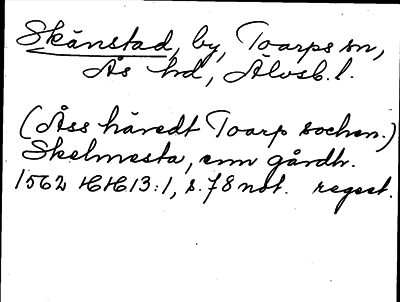 Skånstad, by, Toarps sn,
Ås hd, Älvsb. l.
(Åss häredt Toarp sochen.)
Skelmesta, enn gårdh.
1562 HH13:1, s. 78 not. regest.